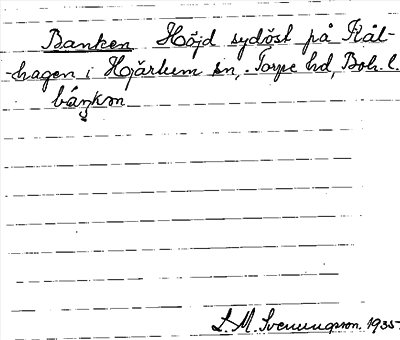 Banken Höjd sydöst på Kål-
hagen i Hjärtum sn, Torpe hd, Boh. l.
báŋkɷn
L. M. Svenungsson. 1935.